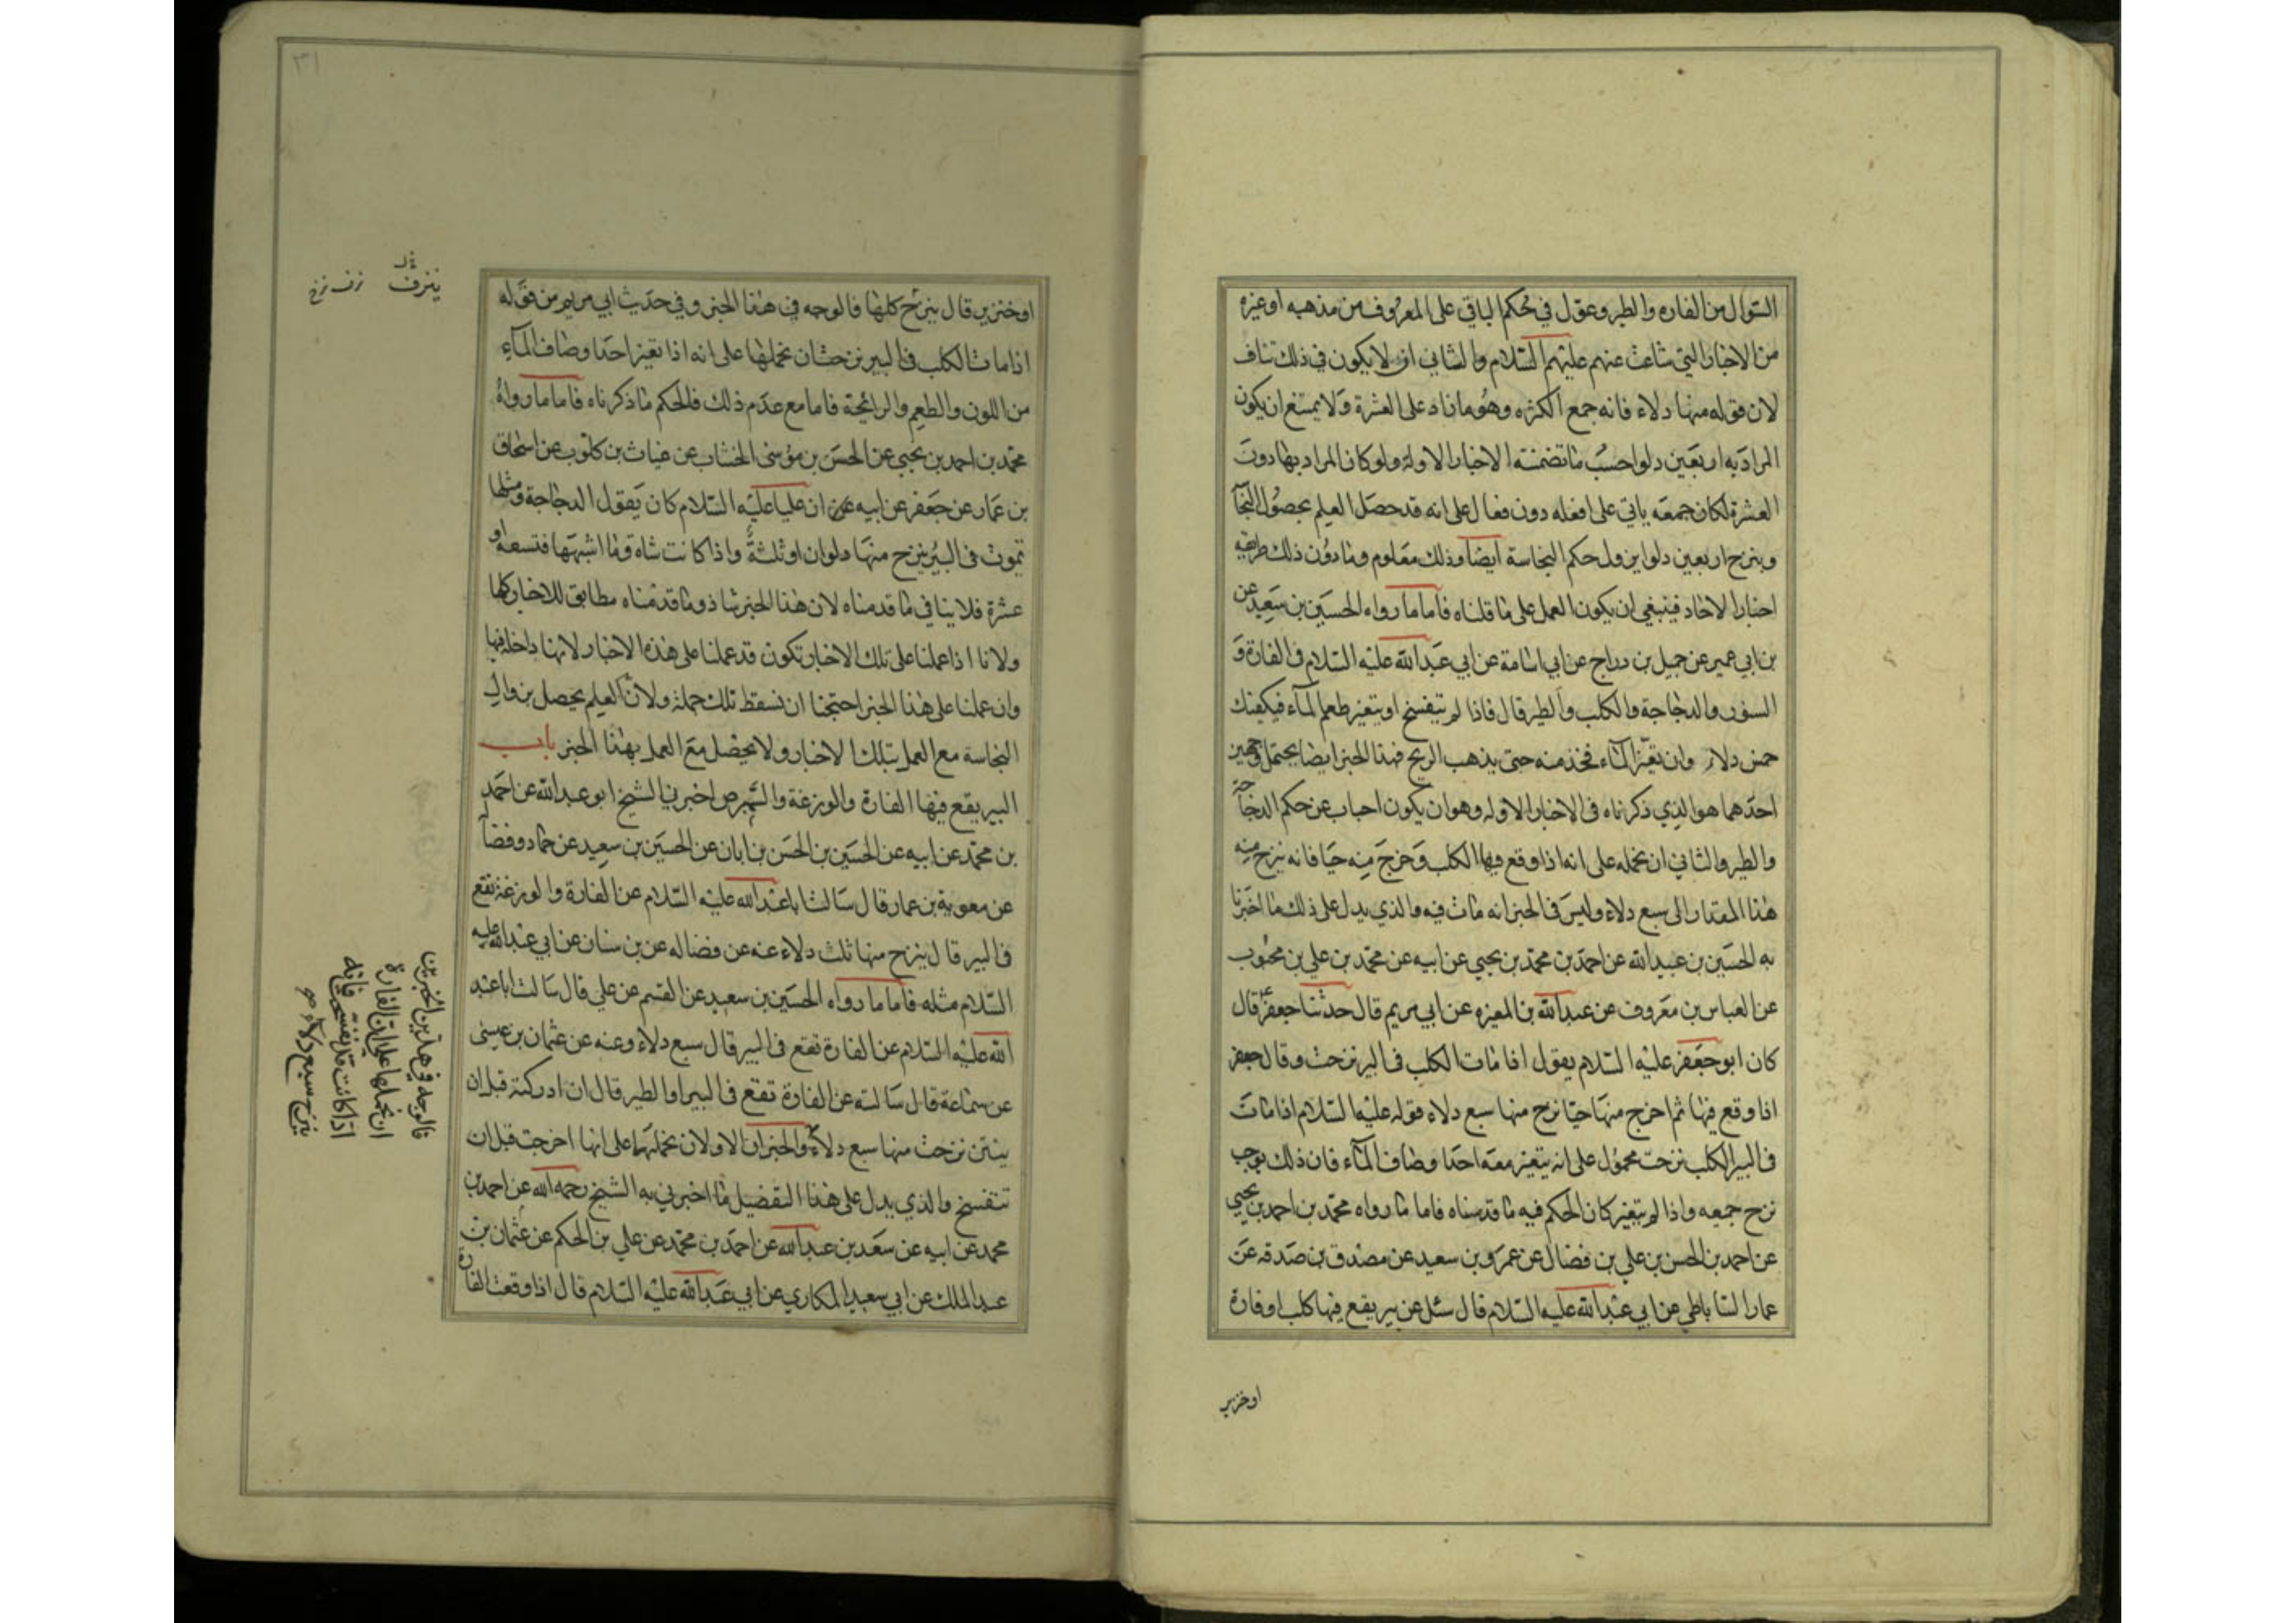 السؤال من الفاره والطير وعول في حكم الباقي على المعروف من مذهبه او غيره
من الاخبار التي شاعت عنهم عليهم السلام والثاني ان لا يكون في ذلك تناف
لان قوله منها دلاء فانه جمع الكثره وهو ما زاد على العشرة ولا يمتنع ان يكون
المراد به اربعين دلوا حسب ما تضمنته الاخبار الاوله ولو كان المراد بها دون
العشرة لكان جمعه ياتي على افعله دون فعال على انه قد حصل العلم بحصول النجا
وبنزح اربعين دلوا يزول حكم النجاسة ايضا وذلك معلوم وما دون ذلك طريقه
اخبار الاحاد فينبغي ان يكون العمل على ما قلناه فاما ما رواه الحسين بن سعيد عن
بن ابي عمير عن جميل بن دراج عن ابي اسامة عن ابي عبد الله عليه السلام في الفارة و
السنور والدجاجة والكلب والطير قال فاذا لم يتفسخ او يتغير طعم الماء فيكفيك
خمس دلاء وان تغير الماء فخذ منه حتى يذهب الريح فهذا الخبر ايضا يحتمل وجهين
احدهما هو الذي ذكرناه في الاخبار الاوله وهو ان يكون اجاب عن حكم الدجاجة
والطير والثاني ان نحمله على انه اذا وقع فيها الكلب وخرج منه حيا فانه ينزح منه
هذا المقدار الى سبع دلاء وليس في الخبر انه مات فيه والذي يدل على ذلك ما اخبرنا
به الحسين بن عبيد الله عن احمد بن محمد بن يحيى عن ابيه عن محمد بن علي بن محبوب
عن العباس بن معروف عن عبد الله بن المغيره عن ابي مريم قال حدثنا جعفر قال
كان ابو جعفر عليه السلام يقول اذا مات الكلب في البير نزحت وقال جعفر
اذا وقع فيها ثم اخرج منها حيا نزح منها سبع دلاء قوله عليه السلام اذا مات
في البير الكلب نزحت محمول على انه يتغير معه احد اوصاف الماء فان ذلك يوجب
نزح جميعه واذا لم يتغير كان الحكم فيه ما قدمناه فاما ما رواه محمد بن احمد بن يحيى
عن احمد بن الحسن بن علي بن فضال عن عمرو بن سعيد عن مصدق بن صدقه عن
عمار الساباطي عن ابي عبد الله عليه السلام قال سئل عن بير يقع فيها كلب او فارة
او خنزير
٣١
ينزف
نزف نزح
او خنزير قال ينزح كلها فالوجه في هذا الخبر وفي حديث ابي مريم من قوله
اذا مات الكلب في البير نزحت ان نحملها على انه اذا تغير احد اوصاف الماء
من اللون والطعم والرائحة فاما مع عدم ذلك فالحكم ما ذكرناه فاما ما رواه
محمد بن احمد بن يحيى عن الحسن بن موسى الخشاب عن غياث بن كلوب عن اسحاق
بن عمار عن جعفر عن ابيه ان عليا عليه السلام كان يقول الدجاجة ومثلها
تموت في البير ينزح منها دلوان او ثلثة واذا كانت شاه وما اشبهها فتسعه او
عشرة فلا ينافي ما قدمناه لان هذا الخبر شاذ وما قدمناه مطابق للاخبار كلها
ولانا اذا عملنا على تلك الاخبار نكون قد عملنا على هذه الاخبار لانها داخله فيها
وان عملنا على هذا الخبر احتجنا ان نسقط تلك جملة ولان العلم يحصل بزوال
النجاسة مع العمل بتلك الاخبار ولا يحصل مع العمل بهذا الخبر باب
البير يقع فيها الفارة والوزغة والسم برص اخبرني الشيخ ابو عبد الله عن احمد
بن محمد عن ابيه عن الحسين بن الحسن بن ابان عن الحسين بن سعيد عن حماد وفضا
عن معوية بن عمار قال سالت ابا عبد الله عليه السلام عن الفارة والوزغة تقع
في البير قال ينزح منها ثلث دلاء عنه عن فضاله عن بن سنان عن ابي عبد الله عليه
السلام مثله فاما ما رواه الحسين بن سعيد عن القسم عن علي قال سالت ابا عبد
الله عليه السلام عن الفارة تقع في البير قال سبع دلاء وعنه عن عثمان بن عيسى
عن سماعة قال سالته عن الفارة تقع في البير او الطير قال ان ادركته قبل ان
ينتن نزحت منها سبع دلاء والخبران الاولان نحملهما على انها اخرجت قبل ان
تتفسخ والذي يدل على هذا التفصيل ما اخبرني به الشيخ رحمه الله عن احمد بن
محمد عن ابيه عن سعد بن عبد الله عن احمد بن محمد عن علي بن الحكم عن عثمان بن
عبد الملك عن ابي سعيد المكاري عن ابي عبد الله عليه السلام قال اذا وقعت الفارة
فالوجه في هذين الخبرين
ان نحملها على ان الفارة
اذا كانت قد تفسخت فانه
ينزح سبع دلاء